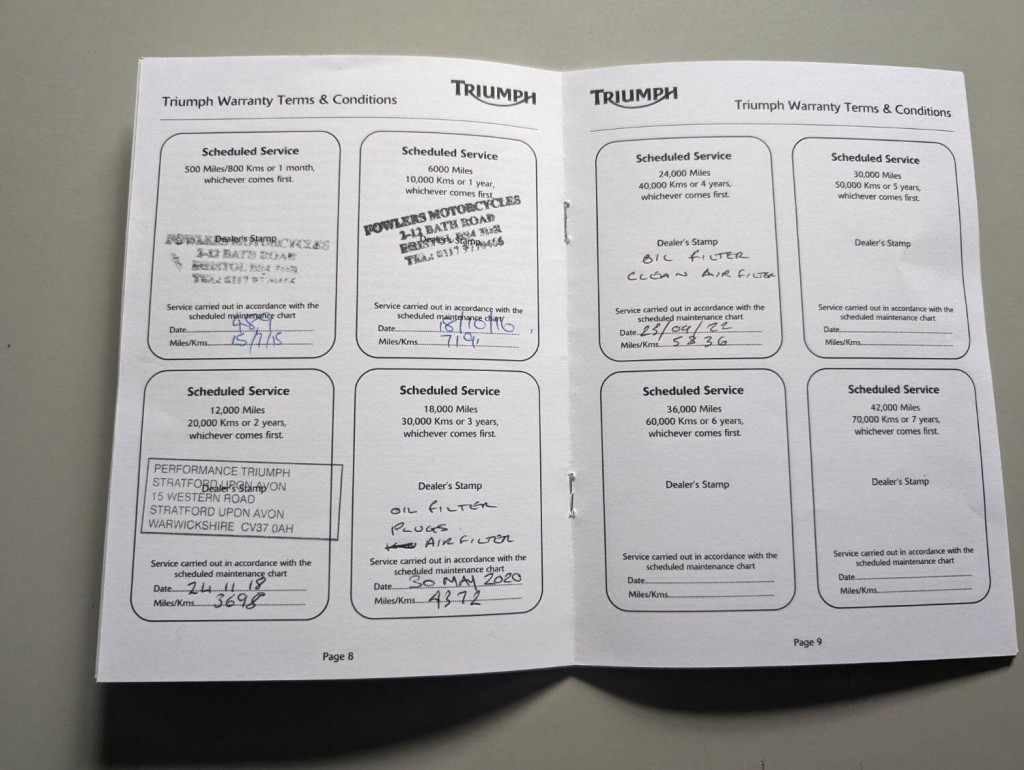 Triumph Warranty Terms & Conditions
TRIUMPH
Scheduled Service
500 Miles/800 Kms or 1 month,
whichever comes first.
Dealer's Stamp
FOWLERS MOTORCYCLES
2-12 BATH ROAD
BRISTOL BS4
TEL: 0117
Service carried out in accordance with the
scheduled maintenance chart
Date
Miles/Kms. 15/7/15
Scheduled Service
6000 Miles
10,000 Kms or 1 year,
whichever comes first.
FOWLERS MOTORCYCLES
2-12 BATH ROAD
BRISTOL BS4
Dealer's Stamp
TEL: 0117
Service carried out in accordance with the
scheduled maintenance chart
Date 18/10/16
Miles/Kms.
Scheduled Service
12,000 Miles
20,000 Kms or 2 years,
whichever comes first.
PERFORMANCE TRIUMPH
STRATFORD UPON AVON
Dealer's Stamp
15 WESTERN ROAD
STRATFORD UPON AVON
WARWICKSHIRE CV37 0AH
Service carried out in accordance with the
scheduled maintenance chart
Date 24 11 18
Miles/Kms 3698
Scheduled Service
18,000 Miles
30,000 Kms or 3 years,
whichever comes first.
Dealer's Stamp
OIL FILTER
PLUGS
AIR FILTER
Service carried out in accordance with the
scheduled maintenance chart
Date 30 MAY 2020
Miles/Kms. 4372
Page 8
TRIUMPH
Triumph Warranty Terms & Conditions
Scheduled Service
24,000 Miles
40,000 Kms or 4 years,
whichever comes first.
Dealer's Stamp
OIL FILTER
CLEAN AIR FILTER
Service carried out in accordance with the
scheduled maintenance chart
Date 23/04/22
Miles/Kms. 5836
Scheduled Service
30,000 Miles
50,000 Kms or 5 years,
whichever comes first.
Dealer's Stamp
Service carried out in accordance with the
scheduled maintenance chart
Date
Miles/Kms.
Scheduled Service
36,000 Miles
60,000 Kms or 6 years,
whichever comes first.
Dealer's Stamp
Service carried out in accordance with the
scheduled maintenance chart
Date
Miles/Kms.
Scheduled Service
42,000 Miles
70,000 Kms or 7 years,
whichever comes first.
Dealer's Stamp
Service carried out in accordance with the
scheduled maintenance chart
Date
Miles/Kms.
Page 9